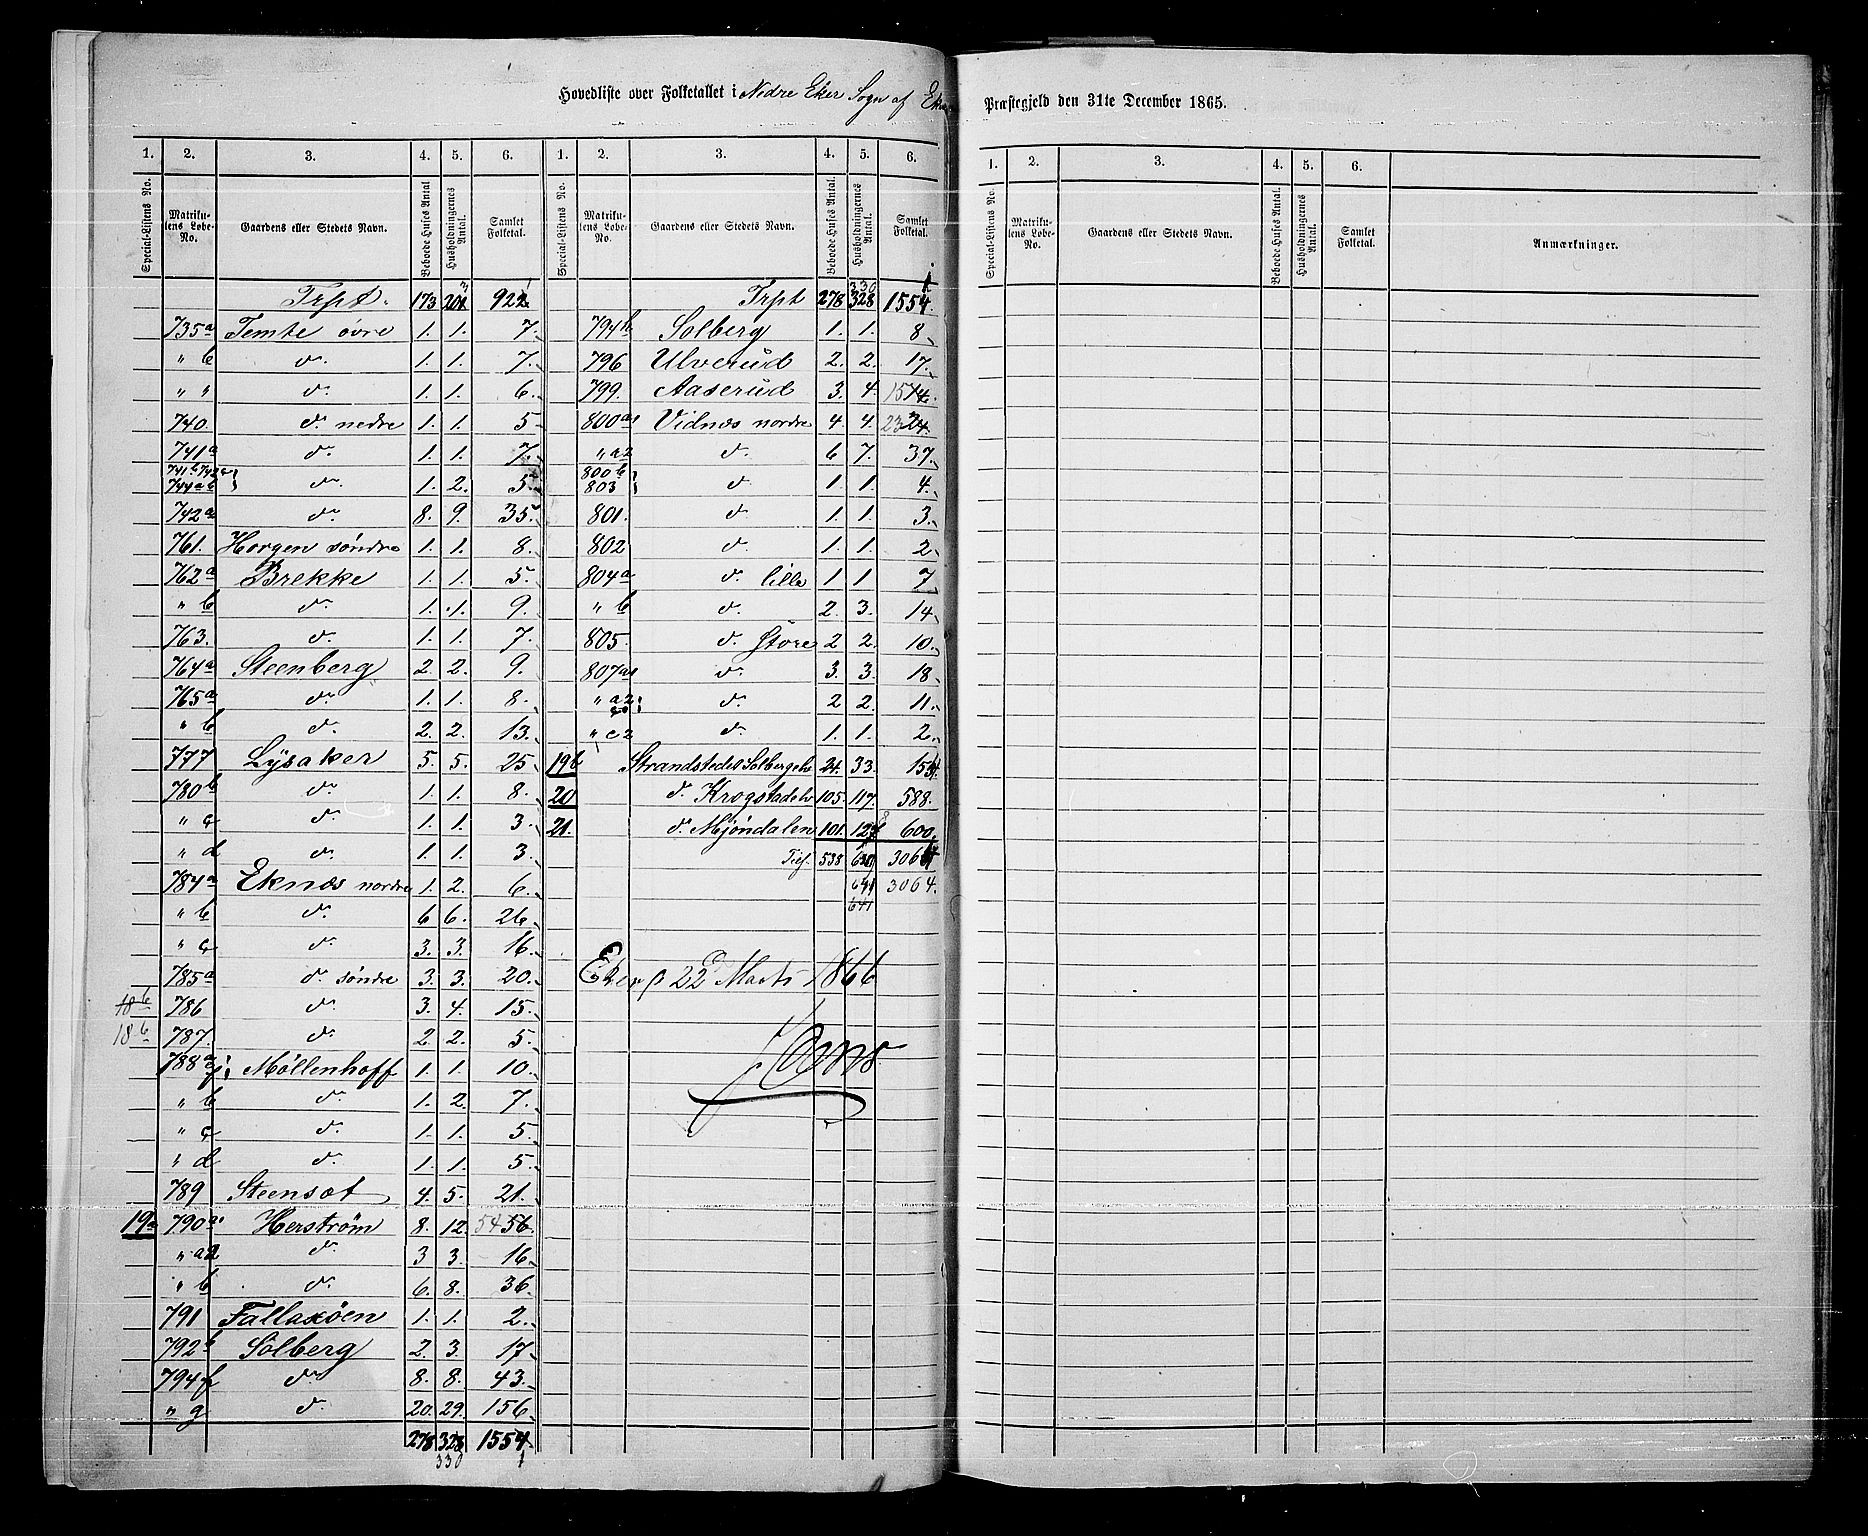 Hovedliste over Folketallet i Nedre Eker Sogn af Eker Præstegjeld den 31te December 1865.
1. 2. 3. 4. 5. 6.
Special-Listens No. Matrikulens Løbe-No. Gaardens eller Stedets Navn. Beboede Huses Antal Husholdningernes Antal. Samlet Folketal.
Trpt. 173 201 922
735a Temte øvre 1. 1. 7.
" b d. 1. 1. 7.
" " d. 1. 1. 6.
740. d. nedre 1. 1. 5
741a d. 1. 1. 7.
741b 742a
744ab d. 1. 2. 5
742a d. 8. 9. 35.
761. Horgen søndre 1. 1. 8.
762a Brekke 1. 1. 5.
" b d. 1. 1. 9.
763. d. 1. 1. 7.
764a Steenberg 2. 2. 9.
765a d. 1. 1. 8.
" b d. 2. 2. 13.
777 Lysaker 5. 5. 25
780b d. 1. 1. 8.
" c d. 1. 1. 3.
" d d. 1. 1. 3.
784a Eknæs nordre 1. 2. 6.
" b d. 6 6. 26.
" c d. 3. 3. 16.
785a d. søndre 3. 3. 20.
18b 786 d. 3. 4. 15.
18b 787. d. 2. 2. 5.
788a Møllenhoff 1. 1. 10.
" b d. 1. 2. 7.
" c d. 1. 1. 5.
" d d. 1. 1. 5.
789 Steensæt 4. 5. 21.
19a 790a1 Herstrøm 8. 12. 54 56.
" a2 d. 3 3. 16
" b d. 6. 8. 36.
791 Fallaxøen 1. 1. 2.
792b Solberg 2. 3. 17
794f d. 8. 8. 43.
" g d. 20. 29. 156.
278 328 1554
330 1
1. 2. 3. 4. 5. 6.
Special-Listens No. Matrikulens Løbe-No. Gaardens eller Stedets Navn. Beboede Huses Antal. Husholdningernes Antal. Samlet Folketal.
330 1
Trpt 278 328 1554.
794h Solberg 1. 1. 8
796 Ulverud 2. 2. 17.
799. Aaserud 3. 4. 15 14.
800a1 Vidnæs nordre 4. 4. 23 24.
" a2 d. 6 7. 37.
800b
803 d. 1. 1. 4.
801. d. 1. 1. 3.
802 d. 1. 1. 2
804a d. lille 1 1 7
" b d. 2. 3. 14
805. d. Store 2 2. 10.
807a1 d. 3. 3. 18
" a2 d. 2 2. 11.
" c2 d. 1. 1. 2.
19b Strandstedet Solbergelv 24. 33. 154
20 d. Krogstadelv 105. 117. 588.
21. d. Mjøndalen 101. 127 600
538 3064
641 3064.
641
Eker p 22 Marts 1866
1. 2. 3. 4. 5. 6.
Special-Listens No. Matrikulens Løbe-No. Gaardens eller Stedets Navn. Beboede Huses Antal. Husholdningernes Antal. Samlet Folketal. Anmærkninger.